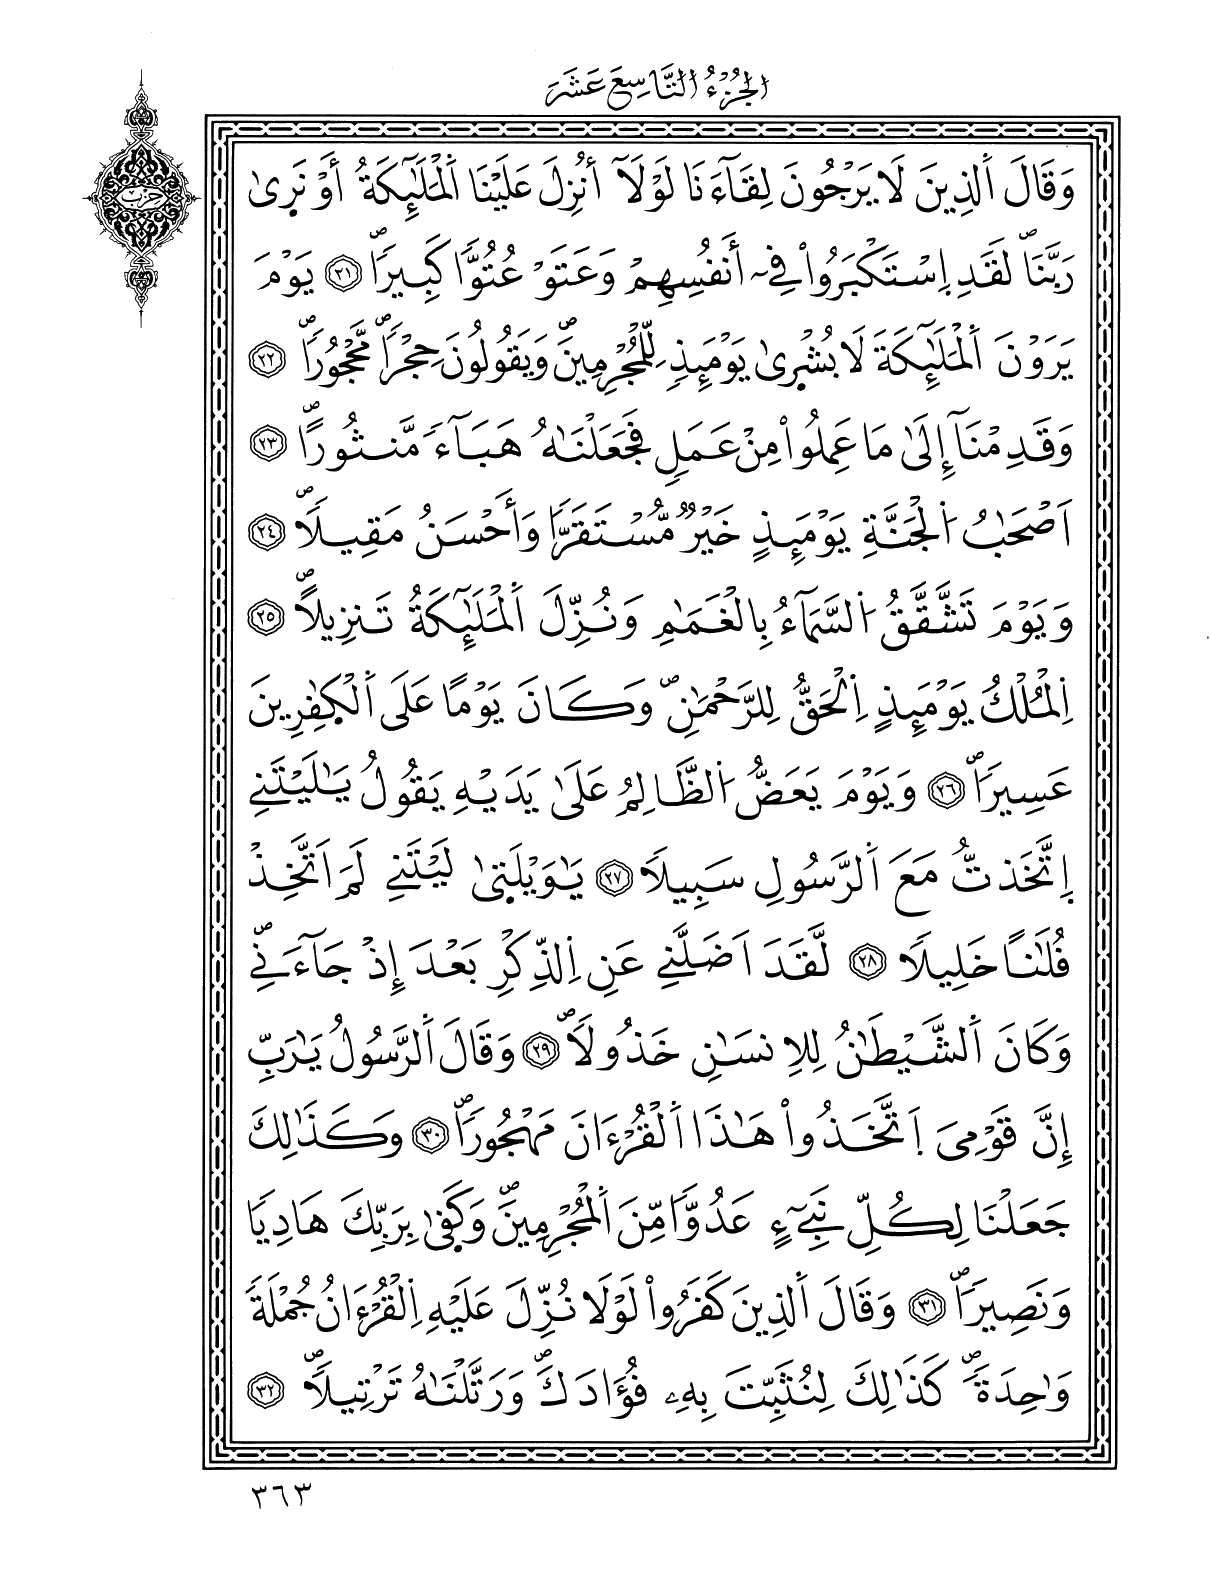 الجزء التاسع عشر
حزب
وَقَالَ اَ۬لذِينَ لَا يَرْجُونَ لِقَآءَنَا لَوْلَآ أُنزِلَ عَلَيْنَا اَ۬لْمَلَٰٓئِكَةُ أَوْ نَر۪يٰ
رَبَّنَاۖ لَقَدِ اِ۪سْتَكْبَرُواْ فِےٓ أَنفُسِهِمْ وَعَتَوْ عُتُوّٗا كَبِيراٗۖ ٢١ يَوْمَ
يَرَوْنَ اَ۬لْمَلَٰٓئِكَةَ لَا بُشْر۪يٰ يَوْمَئِذٖ لِّلْمُجْرِمِينَۖ وَيَقُولُونَ حِجْراٗ مَّحْجُوراٗۖ ٢٢
وَقَدِمْنَآ إِلَيٰ مَا عَمِلُواْ مِنْ عَمَلٖ فَجَعَلْنَٰهُ هَبَآءٗ مَّنثُوراًۖ ٢٣
اَصْحَٰبُ اُ۬لْجَنَّةِ يَوْمَئِذٍ خَيْرٞ مُّسْتَقَرّاٗ وَأَحْسَنُ مَقِيلاٗۖ ٢٤
وَيَوْمَ تَشَّقَّقُ اُ۬لسَّمَآءُ بِالْغَمَٰمِ وَنُزِّلَ اَ۬لْمَلَٰٓئِكَةُ تَنزِيلاًۖ ٢٥
اِ۬لْمُلْكُ يَوْمَئِذٍ اِ۬لْحَقُّ لِلرَّحْمَٰنِۖ وَكَانَ يَوْماً عَلَي اَ۬لْكٰ۪فِرِينَ
عَسِيراٗۖ ٢٦ وَيَوْمَ يَعَضُّ اُ۬لظَّالِمُ عَلَيٰ يَدَيْهِ يَقُولُ يَٰلَيْتَنِے
اِ۪تَّخَذتُّ مَعَ اَ۬لرَّسُولِ سَبِيلاٗ ٢٧ يَٰوَيْلَت۪يٰ لَيْتَنِے لَمَ اَتَّخِذْ
فُلَٰناً خَلِيلاٗ ٢٨ لَّقَدَ اَضَلَّنِے عَنِ اِ۬لذِّكْرِ بَعْدَ إِذْ جَآءَنِےۖ
وَكَانَ اَ۬لشَّيْطَٰنُ لِلِانسَٰنِ خَذُولاٗۖ ٢٩ وَقَالَ اَ۬لرَّسُولُ يَٰرَبِّ
إِنَّ قَوْمِيَ اَ۪تَّخَذُواْ هَٰذَا اَ۬لْقُرْءَانَ مَهْجُوراٗۖ ٣٠ وَكَذَٰلِكَ
جَعَلْنَا لِكُلِّ نَبِےٓءٍ عَدُوّاٗ مِّنَ اَ۬لْمُجْرِمِينَۖ وَكَف۪يٰ بِرَبِّكَ هَادِياٗ
وَنَصِيراٗۖ ٣١ وَقَالَ اَ۬لذِينَ كَفَرُواْ لَوْلَا نُزِّلَ عَلَيْهِ اِ۬لْقُرْءَانُ جُمْلَةٗ
وَٰحِدَةٗۖ كَذَٰلِكَ لِنُثَبِّتَ بِهِۦ فُؤَادَكَۖ وَرَتَّلْنَٰهُ تَرْتِيلاٗۖ ٣٢
٣٦٣